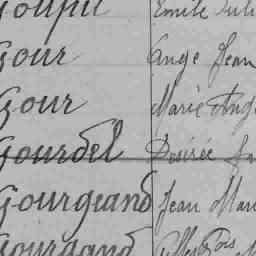 Goupil Emile Juli
Gour Ange Jean
Gour Marie Ang
Gourdel Désirée
Gourgeand Jean Mari